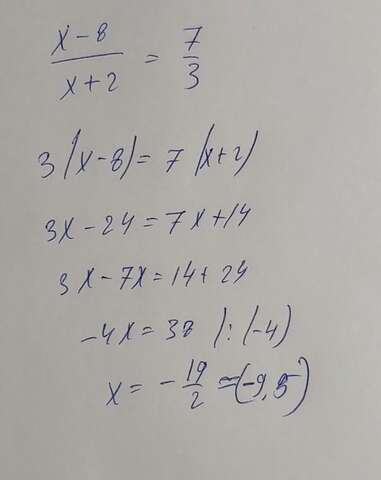 x-8/x+2 = 7/3
3(x-8)= 7(x+2)
3x-24=7x+14
3x-7x=14+24
-4x=38 /:(-4)
x= -19/2 =(-9,5)